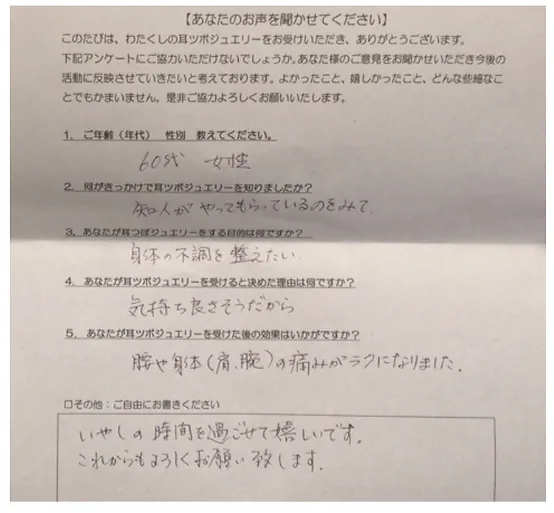 【あなたのお声を聞かせてください】
このたびは、わたくしの耳ツボジュエリーをお受けいただき、ありがとうございます。
下記アンケートにご協力いただけないでしょうか。あなた様のご意見をお聞かせいただき今後の
活動に反映させていきたいと考えております。よかったこと、嬉しかったこと、どんな些細なこ
とでもかまいません。是非ご協力よろしくお願いいたします。
1．ご年齢（年代） 性別 教えてください。
60代 女性
2．何がきっかけで耳ツボジュエリーを知りましたか？
知人が やってもらっているのをみて、
3．あなたが耳つぼジュエリーをする目的は何ですか？
身体の不調を整えたい。
4．あなたが耳ツボジュエリーを受けると決めた理由は何ですか？
気持ち良さそうだから
5．あなたが耳ツボジュエリーを受けた後の効果はいかがですか？
腰や身体（肩、腕）の痛みがラクになりました。
口その他：ご自由にお書きください
いやしの時間を過ごせて嬉しいです。
これからもよろしくお願い致します。